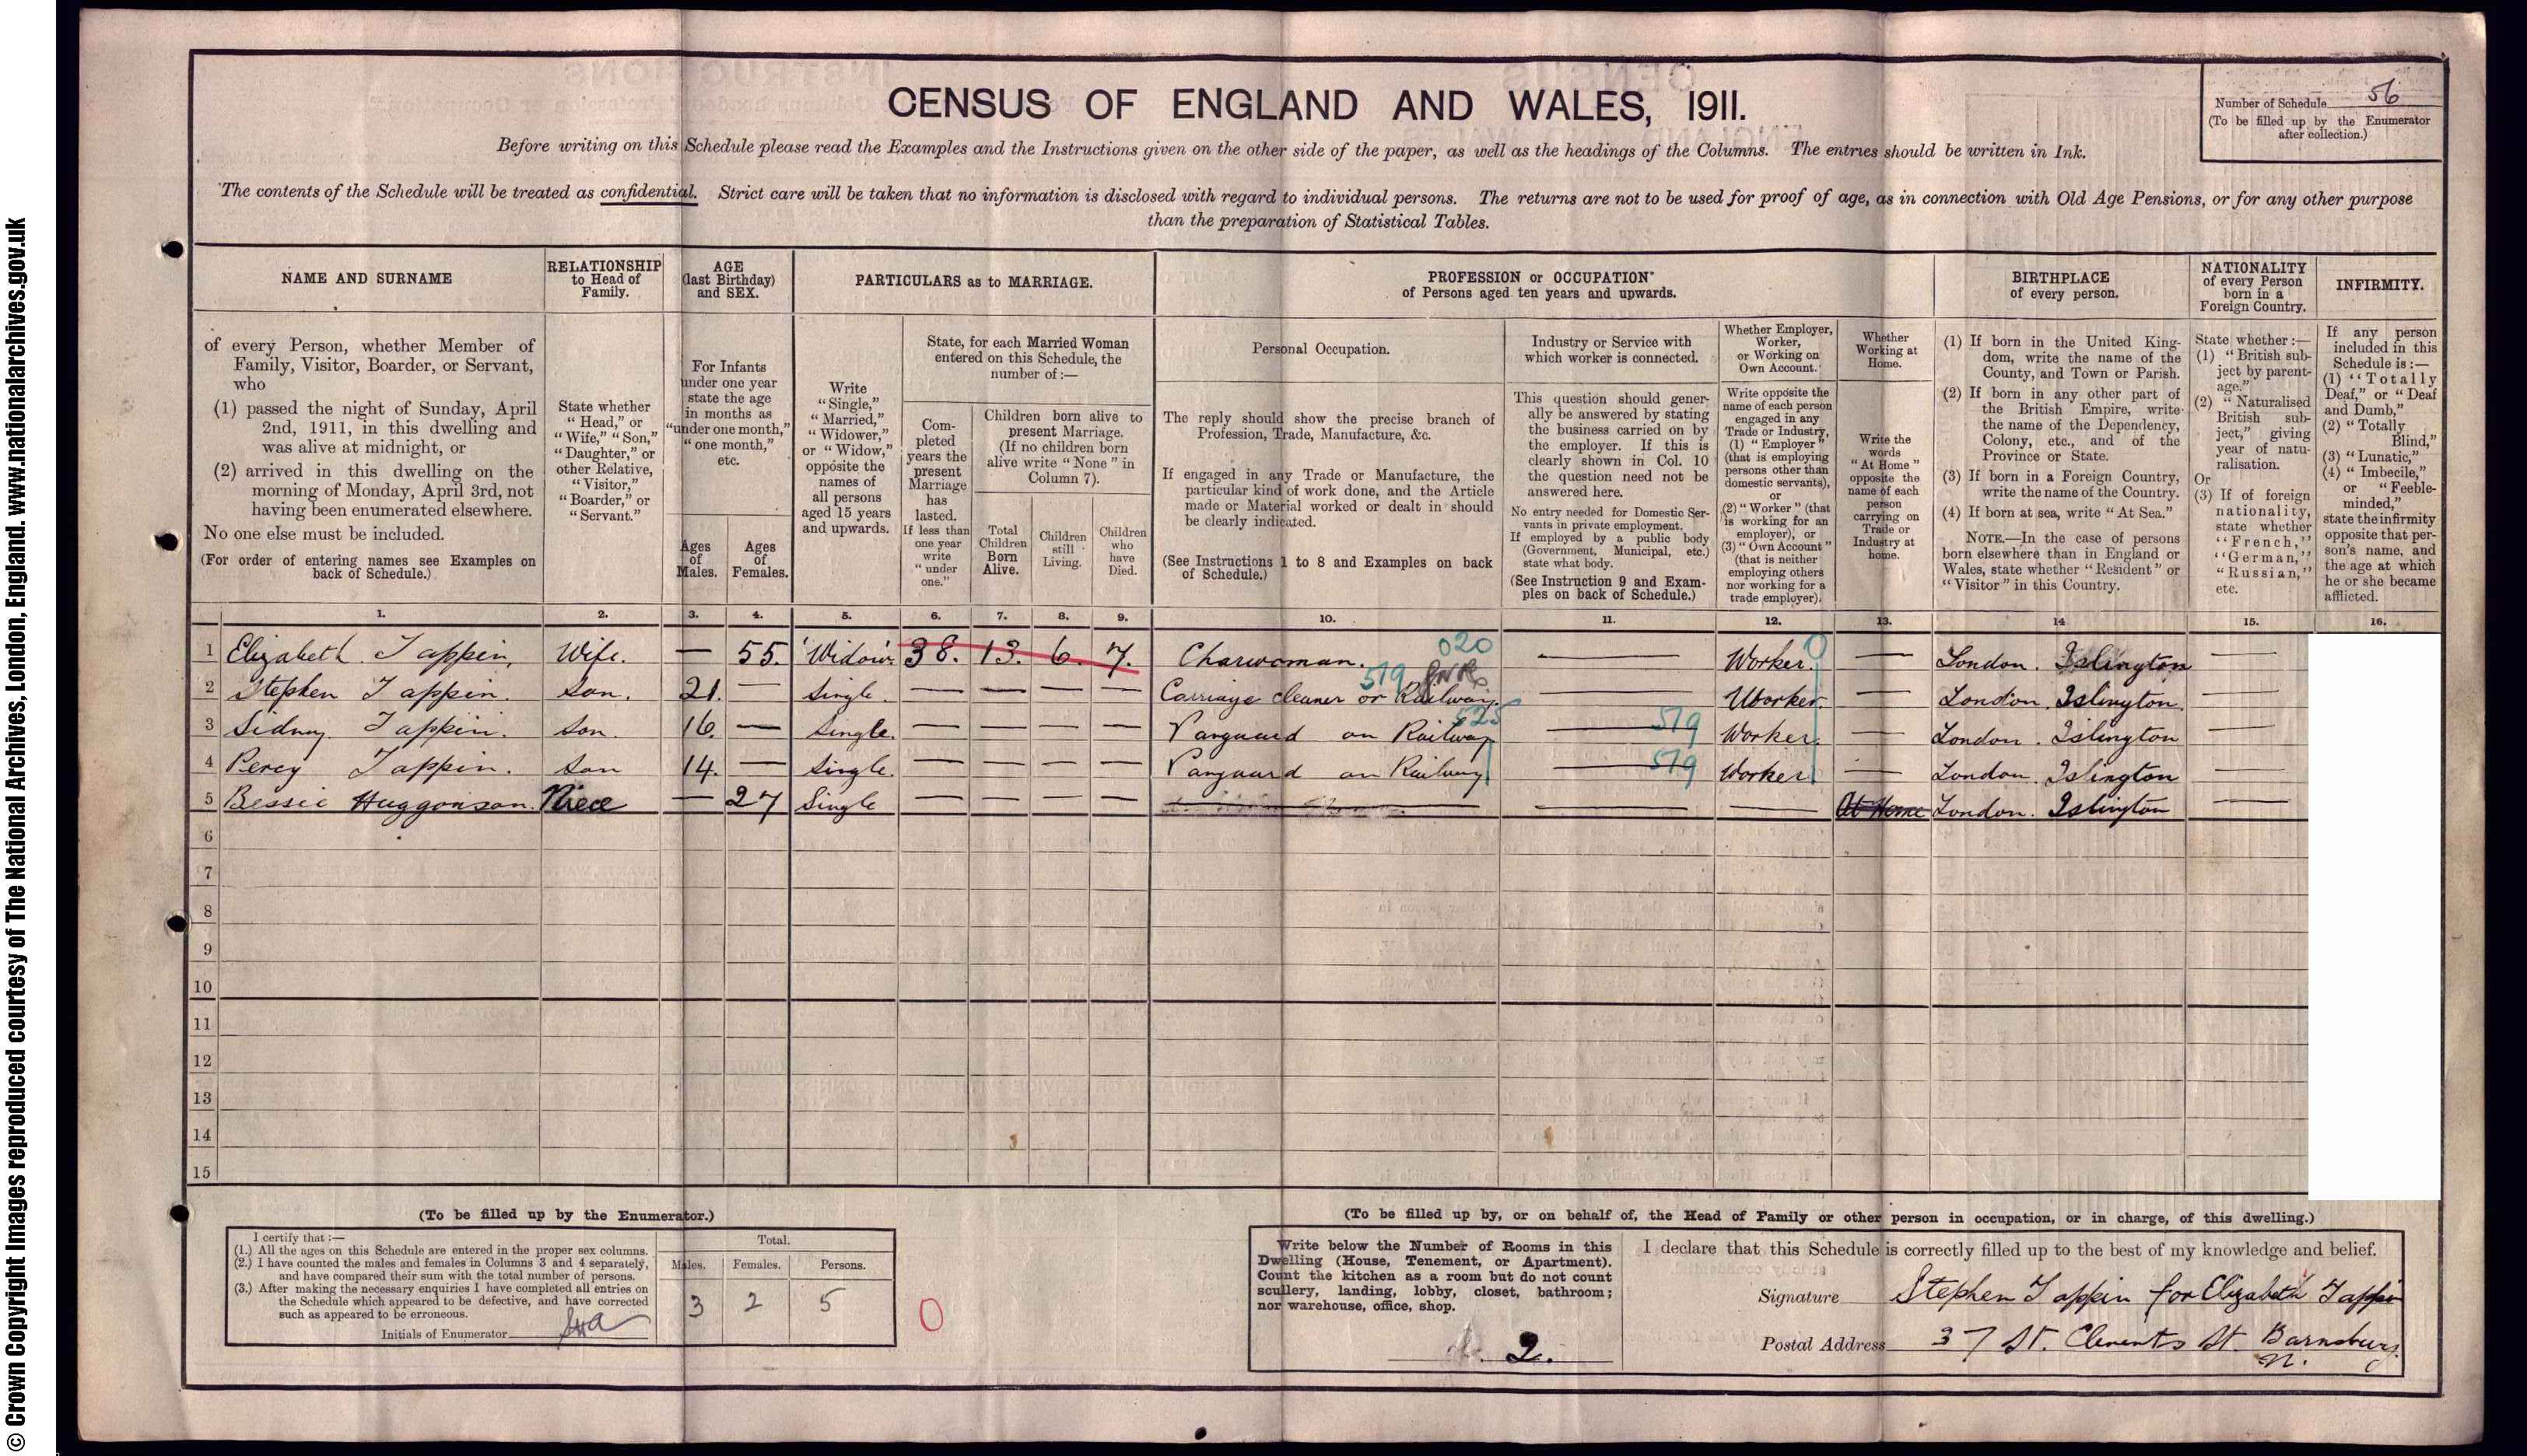 © Crown Copyright Images reproduced courtesy of The National Archives, London, England. www.nationalarchives.gov.uk
CENSUS OF ENGLAND AND WALES, 1911.
Number of Schedule 56
(To be filled up by the Enumerator
after collection.)
Before writing on this Schedule please read the Examples and the Instructions given on the other side of the paper, as well as the headings of the Columns. The entries should be written in Ink.
The contents of the Schedule will be treated as confidential. Strict care will be taken that no information is disclosed with regard to individual persons. The returns are not to be used for proof of age, as in connection with Old Age Pensions, or for any other purpose
than the preparation of Statistical Tables.
NAME AND SURNAME
of every Person, whether Member of
Family, Visitor, Boarder, or Servant,
who
(1) passed the night of Sunday, April
2nd, 1911, in this dwelling and
was alive at midnight, or
(2) arrived in this dwelling on the
morning of Monday, April 3rd, not
having been enumerated elsewhere.
No one else must be included.
(For order of entering names see Examples on
back of Schedule.)
RELATIONSHIP
to Head of
Family.
State whether
"Head," or
"Wife," "Son,"
"Daughter," or
other Relative,
"Visitor,"
"Boarder," or
"Servant."
AGE
(last Birthday)
and SEX.
For Infants
under one year
state the age
in months as
"under one month,"
"one month,"
etc.
Ages
of
Males.
Ages
of
Females.
PARTICULARS as to MARRIAGE.
Write
"Single,"
"Married,"
"Widower,"
or "Widow,"
opposite the
names of
all persons
aged 15 years
and upwards.
State, for each Married Woman
entered on this Schedule, the
number of:—
Com-
pleted
years the
present
Marriage
has
lasted.
If less than
one year
write
"under
one."
Children born alive to
present Marriage.
(If no children born
alive write "None" in
Column 7).
Total
Children
Born
Alive.
Children
still
Living.
Children
who
have
Died.
PROFESSION or OCCUPATION
of Persons aged ten years and upwards.
Personal Occupation.
The reply should show the precise branch of
Profession, Trade, Manufacture, &c.
If engaged in any Trade or Manufacture, the
particular kind of work done, and the Article
made or Material worked or dealt in should
be clearly indicated.
(See Instructions 1 to 8 and Examples on back
of Schedule.)
Industry or Service with
which worker is connected.
This question should gener-
ally be answered by stating
the business carried on by
the employer. If this is
clearly shown in Col. 10
the question need not be
answered here.
No entry needed for Domestic Ser-
vants in private employment.
If employed by a public body
(Government, Municipal, etc.)
state what body.
(See Instruction 9 and Exam-
ples on back of Schedule.)
Whether Employer,
Worker,
or Working on
Own Account.
Write opposite the
name of each person
engaged in any
Trade or Industry,
(1) "Employer"
(that is employing
persons other than
domestic servants),
or
(2) "Worker" (that
is working for an
employer), or
(3) "Own Account"
(that is neither
employing others
nor working for a
trade employer).
Whether
Working at
Home.
Write the
words
"At Home"
opposite the
name of each
person
carrying on
Trade or
Industry at
home.
BIRTHPLACE
of every person.
(1) If born in the United King-
dom, write the name of the
County, and Town or Parish.
(2) If born in any other part of
the British Empire, write
the name of the Dependency,
Colony, etc., and of the
Province or State.
(3) If born in a Foreign Country,
write the name of the Country.
(4) If born at sea, write "At Sea."
NOTE.—In the case of persons
born elsewhere than in England or
Wales, state whether "Resident" or
"Visitor" in this Country.
NATIONALITY
of every Person
born in a
Foreign Country.
State whether:—
(1) "British sub-
ject by parent-
age."
(2) "Naturalised
British sub-
ject," giving
year of natu-
ralisation.
Or
(3) If of foreign
nationality,
state whether
"French,"
"German,"
"Russian,"
etc.
INFIRMITY.
If any person
included in this
Schedule is:—
(1) "Totally
Deaf," or "Deaf
and Dumb,"
(2) "Totally
Blind,"
(3) "Lunatic,"
(4) "Imbecile,"
or "Feeble-
minded,"
state the infirmity
opposite that per-
son's name, and
the age at which
he or she became
afflicted.
1. 2. 3. 4. 5. 6. 7. 8. 9. 10. 11. 12. 13. 14 15. 16.
020
1 Elizabeth Tappin, Wife. — 55. Widow. 38. 13. 6. 7. Charwoman. — Worker. — London. Islington —
519
2 Stephen Tappin. Son. 21. — Single. — — — — Carriage cleaner or Railway. Worker. — London. Islington. —
3 Sidney Tappin. Son. 16. — Single. — — — — Vanguard on Railway — 519 Worker. — London. Islington —
4 Percy Tappin. Son 14. — Single. — — — — Vanguard on Railway — 519 Worker — London. Islington —
5 Bessie Huggonson. Niece — 27 Single — — — — — — At Home London. Islington —
6
7
8
9
10
11
12
13
14
15
(To be filled up by the Enumerator.)
I certify that:—
(1.) All the ages on this Schedule are entered in the proper sex columns.
(2.) I have counted the males and females in Columns 3 and 4 separately,
and have compared their sum with the total number of persons.
(3.) After making the necessary enquiries I have completed all entries on
the Schedule which appeared to be defective, and have corrected
such as appeared to be erroneous.
Initials of Enumerator
Total.
Males. Females. Persons.
3 2 5
0
(To be filled up by, or on behalf of, the Head of Family or other person in occupation, or in charge, of this dwelling.)
Write below the Number of Rooms in this
Dwelling (House, Tenement, or Apartment).
Count the kitchen as a room but do not count
scullery, landing, lobby, closet, bathroom;
nor warehouse, office, shop.
2.
I declare that this Schedule is correctly filled up to the best of my knowledge and belief.
Signature Stephen Tappin for Elizabeth Tappin
Postal Address 37 St. Clements St. Barnsbury.
N.